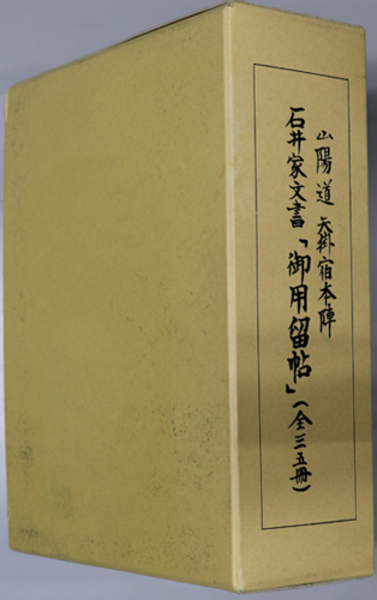 山陽道 矢掛宿本陣
石井家文書「御用留帖」(全三五冊)